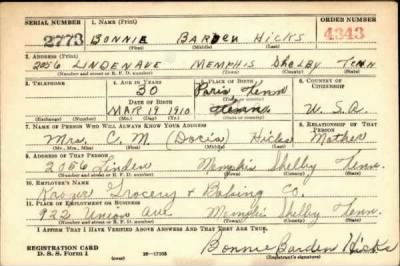 SERIAL NUMBER 1. NAME (Print) ORDER NUMBER
2773 BONNIE BARDEN HICKS 4343
(First) (Middle) (Last)
2. ADDRESS (Print)
2056 LINDEN AVE MEMPHIS SHELBY TENN
(Number and street or R. F. D. number) (Town) (County) (State)
3. TELEPHONE 4. AGE IN YEARS 5. PLACE OF BIRTH 6. COUNTRY OF CITIZENSHIP
30 Paris Tenn
DATE OF BIRTH (Town or county)
MAR 19 1910 Tenn U.S.A.
(Exchange) (Number) (Mo.) (Day) (Yr.) (State or country)
7. NAME OF PERSON WHO WILL ALWAYS KNOW YOUR ADDRESS 8. RELATIONSHIP OF THAT PERSON
Mrs. C. M. (Docia) Hicks Mother
(Mr., Mrs., Miss) (First) (Middle) (Last)
9. ADDRESS OF THAT PERSON
Linden Memphis Shelby Tenn.
(Number and street or R. F. D. number) (Town) (County) (State)
10. EMPLOYER'S NAME
Kroger Grocery & Baking Co.
11. PLACE OF EMPLOYMENT OR BUSINESS
922 Union Ave Memphis Shelby Tenn.
(Number and street or R. F. D. number) (Town) (County) (State)
I AFFIRM THAT I HAVE VERIFIED ABOVE ANSWERS AND THAT THEY ARE TRUE.
REGISTRATION CARD
D. S. S. Form 1 16-17105 Bonnie Barden Hicks
(Registrant's signature)